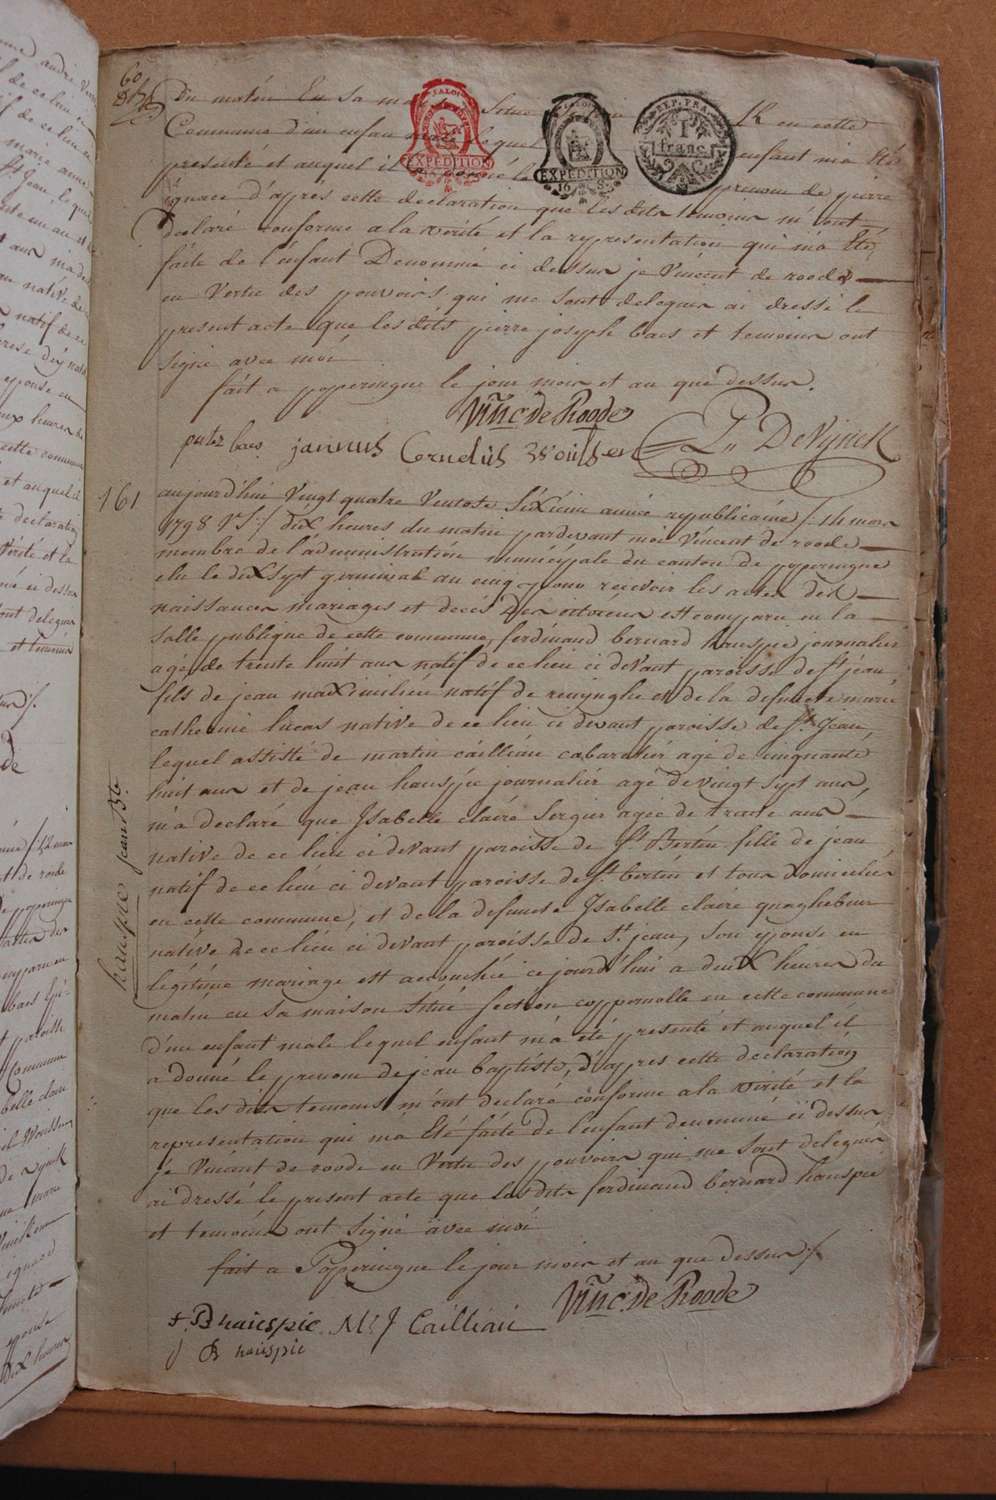 60
du matin en sa m
Commune d'un enfan male lequel enfant m'a été
presenté et auquel il a donné le prenom de pierre
ignace d'apres cette declaration que les dits temoins m'ont
declaré conforme a la verité et la representation qui m'a été
faite de l'enfant Denommé ci dessus je Vincent de roode
en Vertu des pouvoirs qui me sont deleguer ai dressé le
present acte que les dits pierre joseph baes et temoins ont
signé avec moi
fait a poperingue le jour mois et an que dessus.
EXPEDITION
EXPEDITION
REP. FRA.
1 franc
Vinc. de Roode
peter baes jannus Cornelius Woussen P. DeVynck
161
aujourd'hui Vingt quatre Ventose Sixieme année republicaine /: 14 mars
1798 V S :/ dix heures du matin pardevant moi Vincent de roode
membre de l'administration municipale du canton de poperingue
elu le dix sept germinal an cinq pour recevoir les actes des
naissances mariages et decès Des citoyens est comparu en la
salle publique de cette commune, ferdinand bernard hauspie journalier
agé de trente huit ans natif de ce lieu ci devant paroisse de St jean
fils de jean maximilien natif de reninghe et de la defuncte marie
catherine lucas native de ce lieu ci devant paroisse de St Jean
lequel assisté de martin cailliau cabaratier agé de cinquante
huit ans et de jean hauspie journalier agé de vingt sept ans
m'a declaré que Isabelle claire Sergier agée de trente ans
native de ce lieu ci devant paroisse de St Bertin fille de jean
natif de ce lieu ci devant paroisse de St bertin et tous domiciliés
en cette commune, et de la defuncte Isabelle claire quaghebeur
native de ce lieu ci devant paroisse de St jean, son epouse en
légitime mariage est accouchée ce jourd'hui a deux heures du
matin en sa maison située section coppernolle en cette commune
d'un enfant male lequel enfant m'a été presenté et auquel il
a donné le prenom de jean baptiste, d'apres cette declaration
que les dits temoins m'ont declaré conforme a la verité et la
representation qui ma été faite de l'enfant denommé ci dessus
je Vincent de roode en Vertu des pouvoirs qui me sont delegués
ai dressé le present acte que les dits ferdinand bernard hauspie
et temoins ont signé avec moi
fait a Poperingue le jour mois et an que dessus :/.
hauspie jean Bte
Vinc. de Roode
f. B hauspie M: J Cailliau
J B hauspie